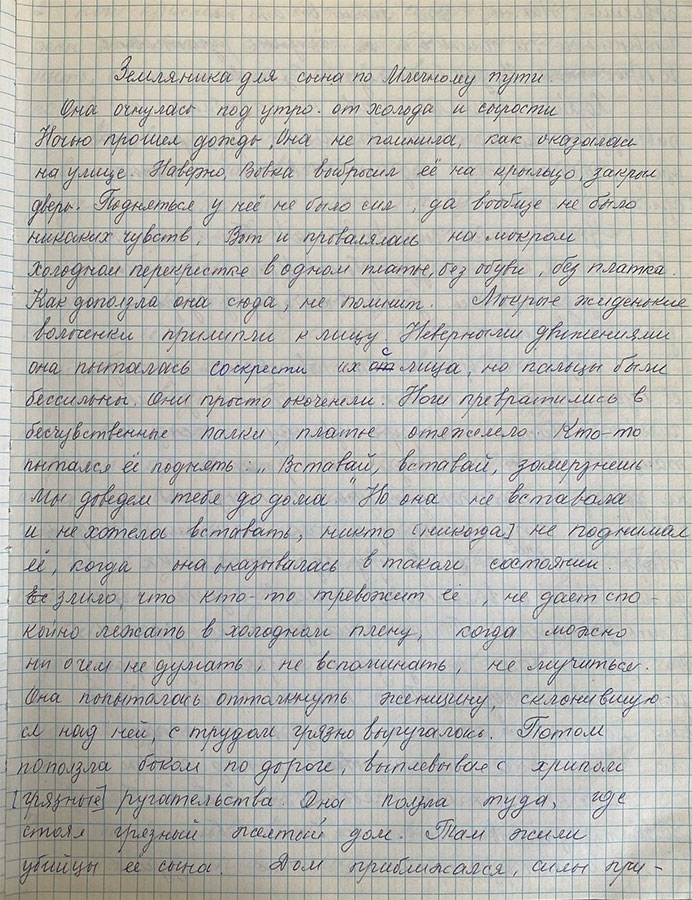 Земляника для сына по Млечному пути.
Она очнулась под утро. от холода и сырости
Ночью прошел дождь, Она не помнила, как оказалась
на улице. Наверно, Вовка выбросил её на крыльцо, закрыл
дверь. Подняться у неё не было сил, да вообще не было
никаких чувств. Вот и провалялась на мокром
холодном перекрестье в одном платье, без обуви, без платка.
Как доползла она сюда, не помнит. Мокрые жиденькие
волосенки прилипли к лицу Неверными движениями
она пыталась соскрести их с лица, но пальцы были
бессильны. Они просто окоченели. Ноги превратились в
бесчувственные палки, платье отяжелело. Кто-то
пытался её поднять: „Вставай, вставай, замерзнешь.
Мы доведем тебя до дома" Но она не вставала
и не хотела вставать, никто [никогда] не поднимал
её, когда она оказывалась в таком состоянии.
Её злило, что кто-то тревожит её, не дает спо-
койно лежать в холодном плену, когда можно
ни о чем не думать, не вспоминать, не мучиться.
Она попыталась оттолкнуть женщину, склонившую-
ся над ней, с трудом грязно выругалась. Потом
поползла боком по дороге, выплевывая с хрипом
[грязные] ругательства. Она ползла туда, где
стоял грязный желтый дом. Там жили
убийцы её сына. Дом приближался, силы при-